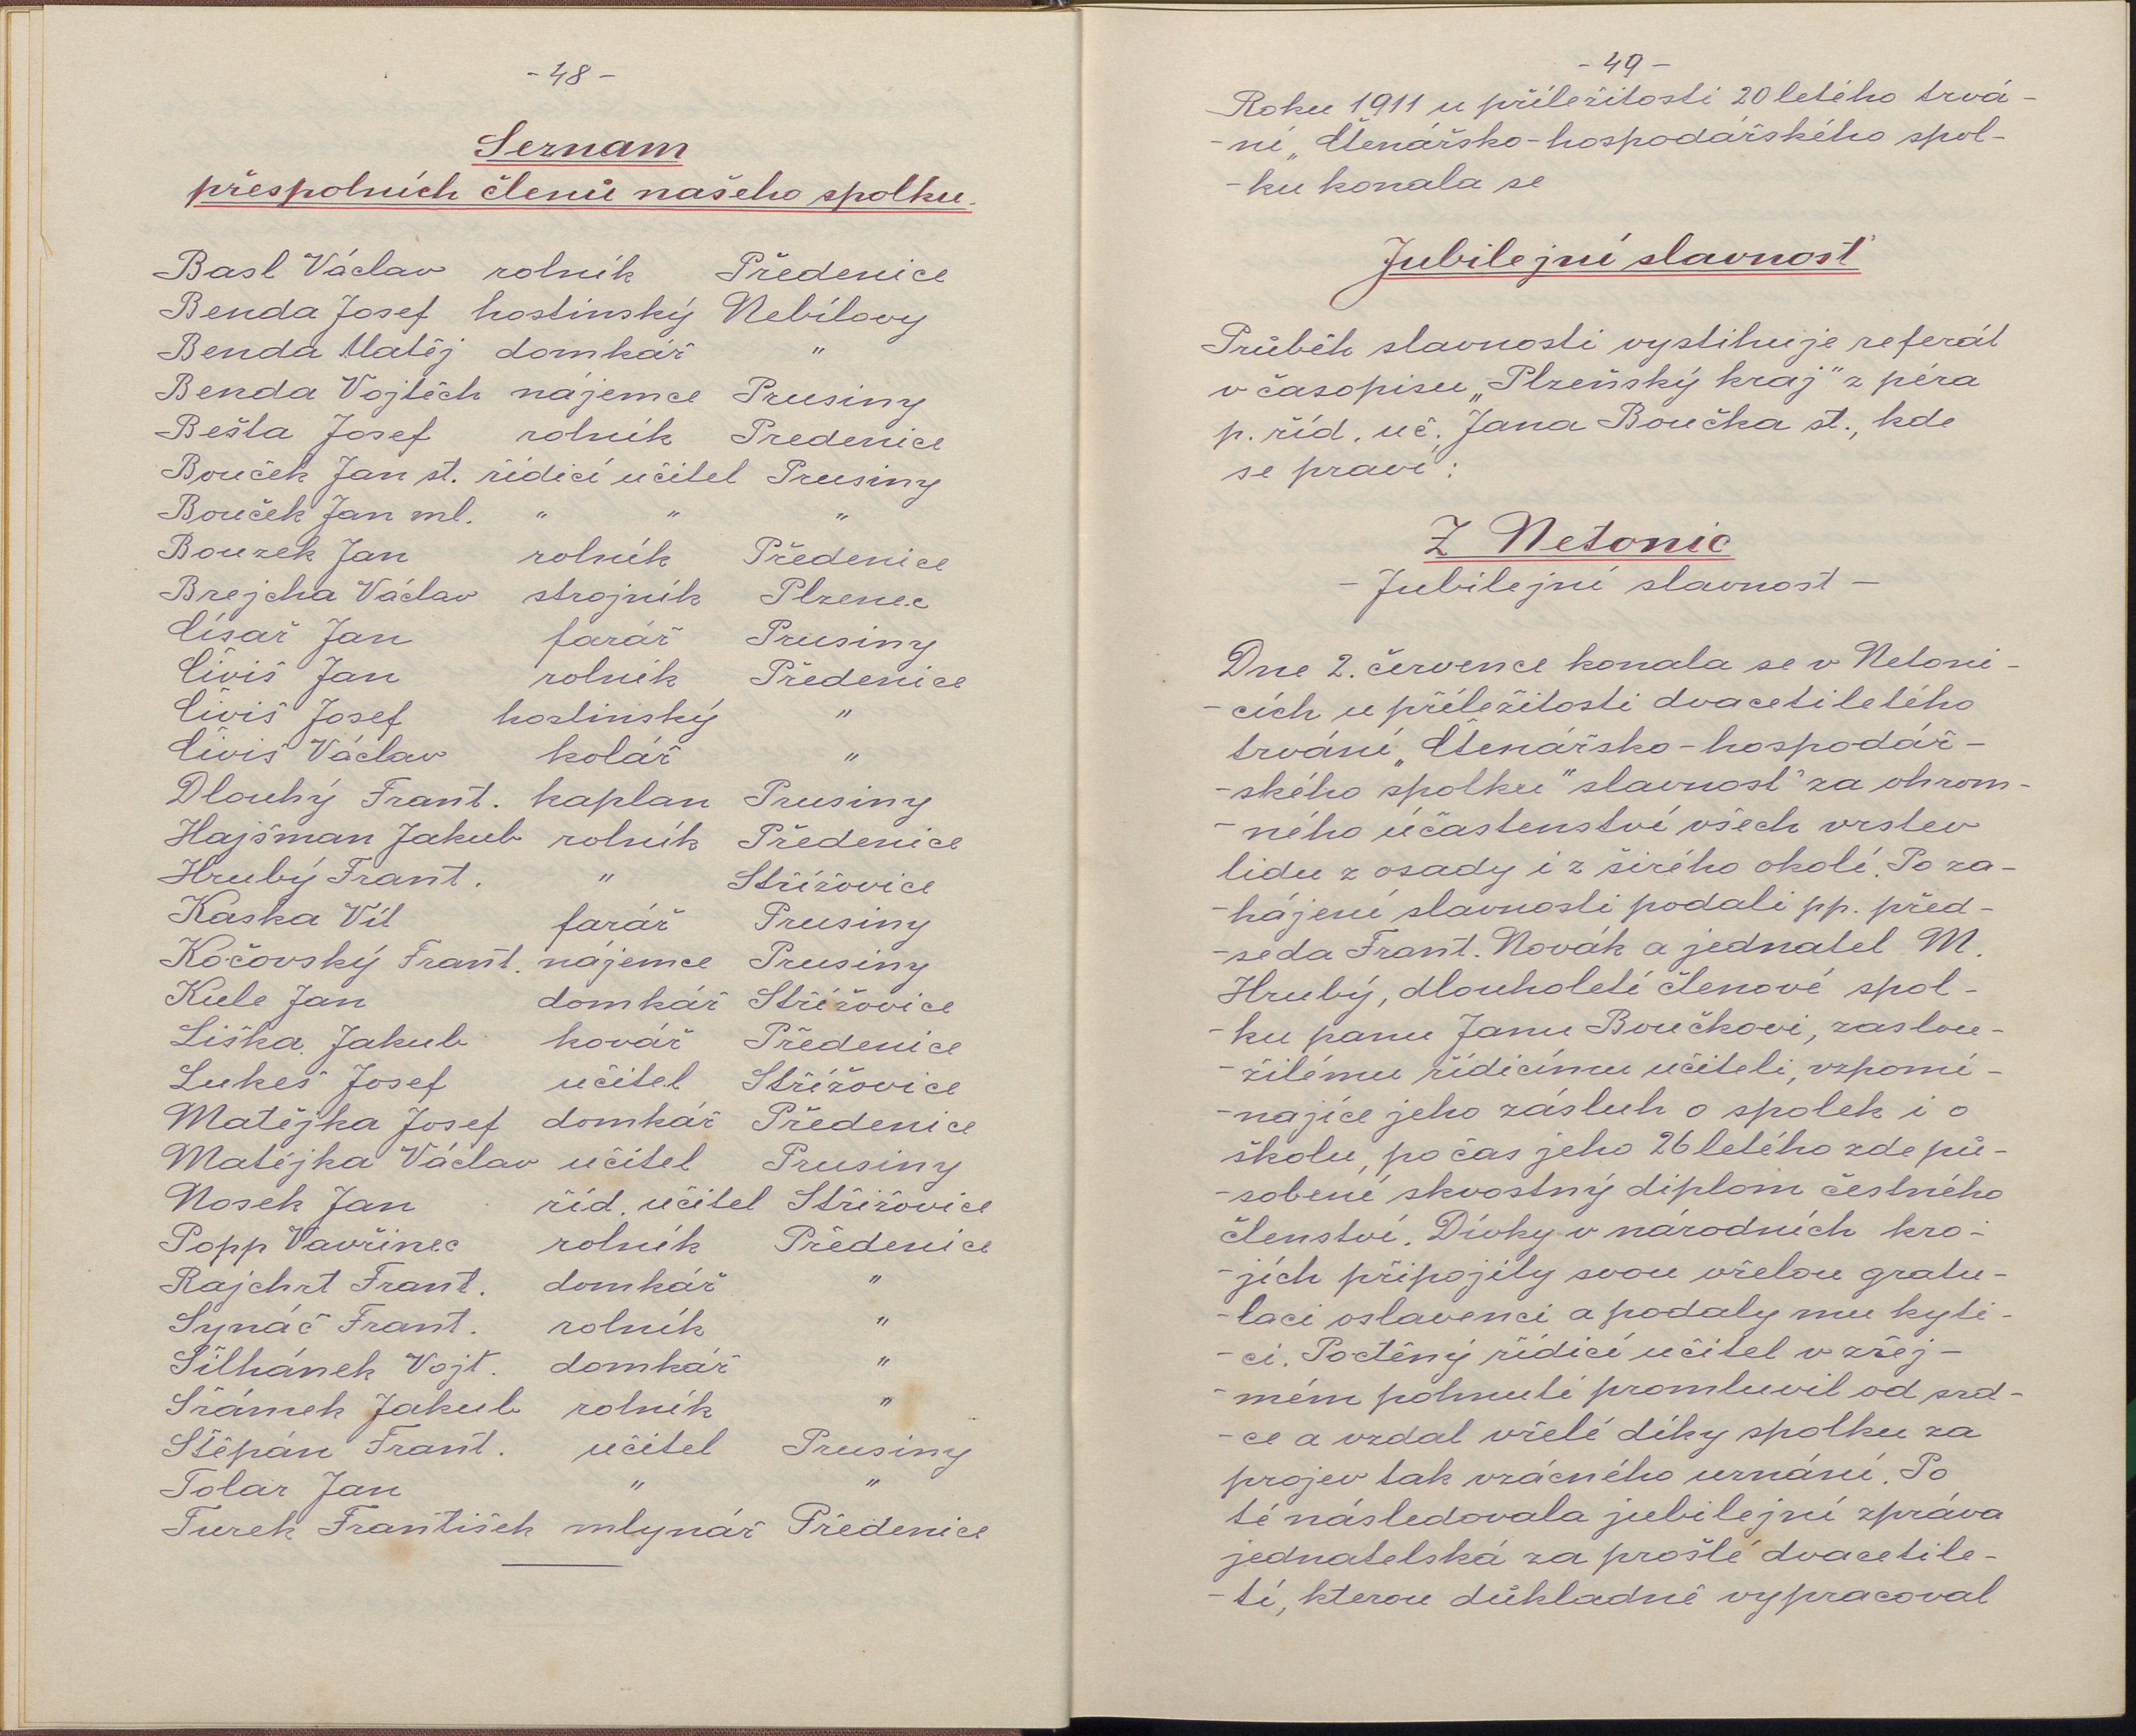 - 48 -
Seznam
přespolních členů našeho spolku.
Basl Václav rolník Předenice
Benda Josef hostinský Nebílovy
Benda Matěj domkář "
Benda Vojtěch nájemce Prusiny
Bešta Josef rolník Předenice
Bouček Jan st. řídící učitel Prusiny
Bouček Jan ml. " " "
Bouzek Jan rolník Předenice
Brejcha Václav strojník Plzenec
Císař Jan farář Prusiny
Čiviš Jan rolník Předenice
Čiviš Josef hostinský "
Čiviš Václav kolář "
Dlouhý Frant. kaplan Prusiny
Hajšman Jakub rolník Předenice
Hrubý Frant. " Střížovice
Kaska Vít farář Prusiny
Kočovský Frant. nájemce Prusiny
Kule Jan domkář Střížovice
Liška Jakub kovář Předenice
Lukeš Josef učitel Střížovice
Matějka Josef domkář Předenice
Matějka Václav učitel Prusiny
Nosek Jan říd. učitel Střížovice
Popp Vavřinec rolník Předenice
Rajchrt Frant. domkář "
Synáč Frant. rolník "
Šilhánek Vojt. domkář "
Šrámek Jakub rolník "
Štěpán Frant. učitel Prusiny
Tolar Jan " "
Turek František mlynář Předenice
- 49 -
Roku 1911 u příležitosti 20letého trvá-
-ní „Čtenářsko-hospodářského spol-
-ku konala se
Jubilejní slavnosť
Průběh slavnosti vystihuje referát
v časopisu „Plzeňský kraj" z péra
p. říd. uč. Jana Boučka st., kde
se praví:
Z Netonic
- Jubilejní slavnosť -
Dne 2. července konala se v Netoni-
-cích u příležitosti dvacetiletého
trvání „Čtenářsko-hospodář-
-ského spolku" slavnosť za ohrom-
-ného účastenství všech vrstev
lidu z osady i z širého okolí. Po za-
-hájení slavnosti podali pp. před-
-seda Frant. Novák a jednatel M.
Hrubý, dlouholetí členové spol-
-ku panu Janu Boučkovi, zaslou-
-žilému řídicímu učiteli, vzpomí-
-najíce jeho zásluh o spolek i o
školu, po čas jeho 26letého zde pů-
-sobení skvostný diplom čestného
členství. Dívky v národních kro-
-jích připojily svou vřelou gratu-
-laci oslavenci a podaly mu kyti-
-ci. Poctěný řídící učitel v zřej-
-mém pohnutí promluvil od srd-
-ce a vzdal vřelé díky spolku za
projev tak vzácného uznání. Po
té následovala jubilejní zpráva
jednatelská za prošlé dvacetile-
-tí, kterou důkladně vypracoval